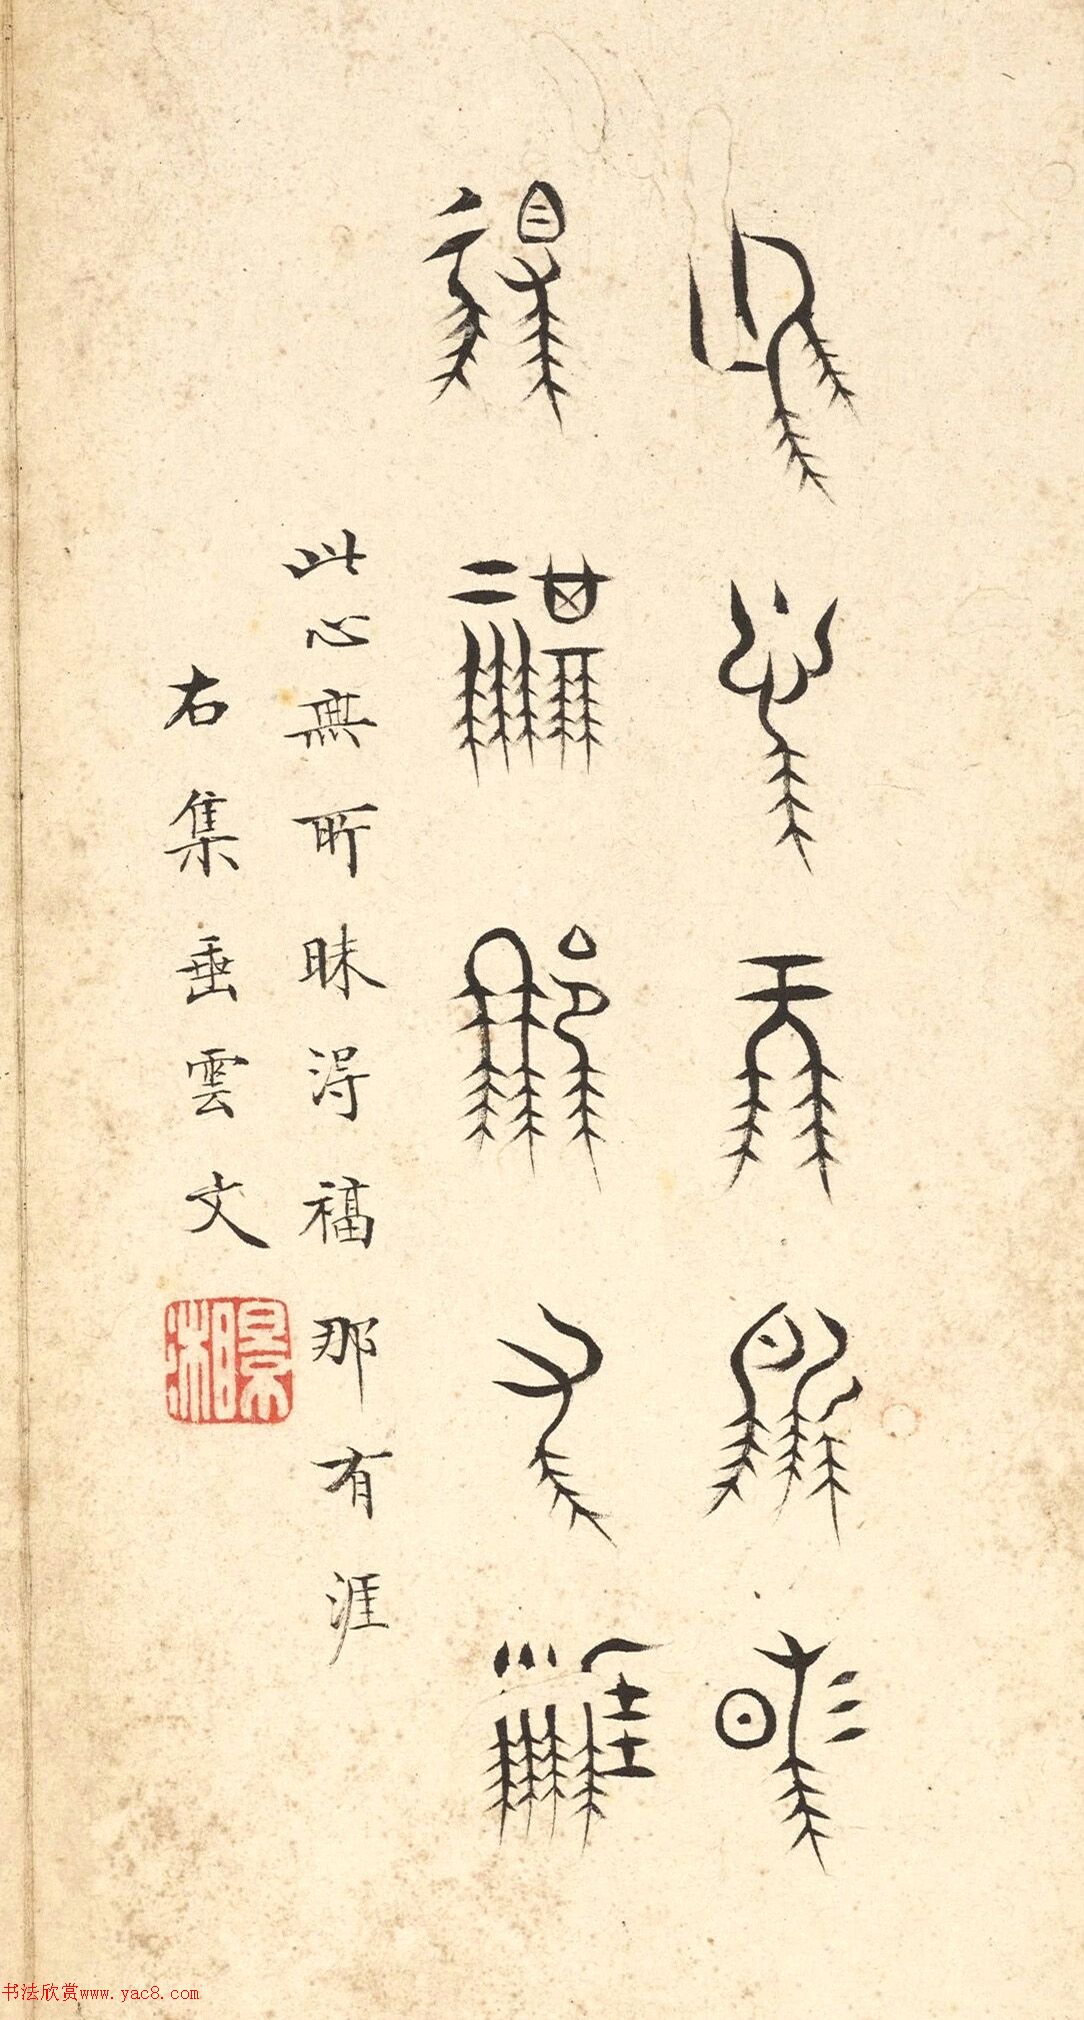 此心无所昧
得福那有涯
此心無所昧得福那有涯
右集垂雲文
书法欣赏www.yac8.com